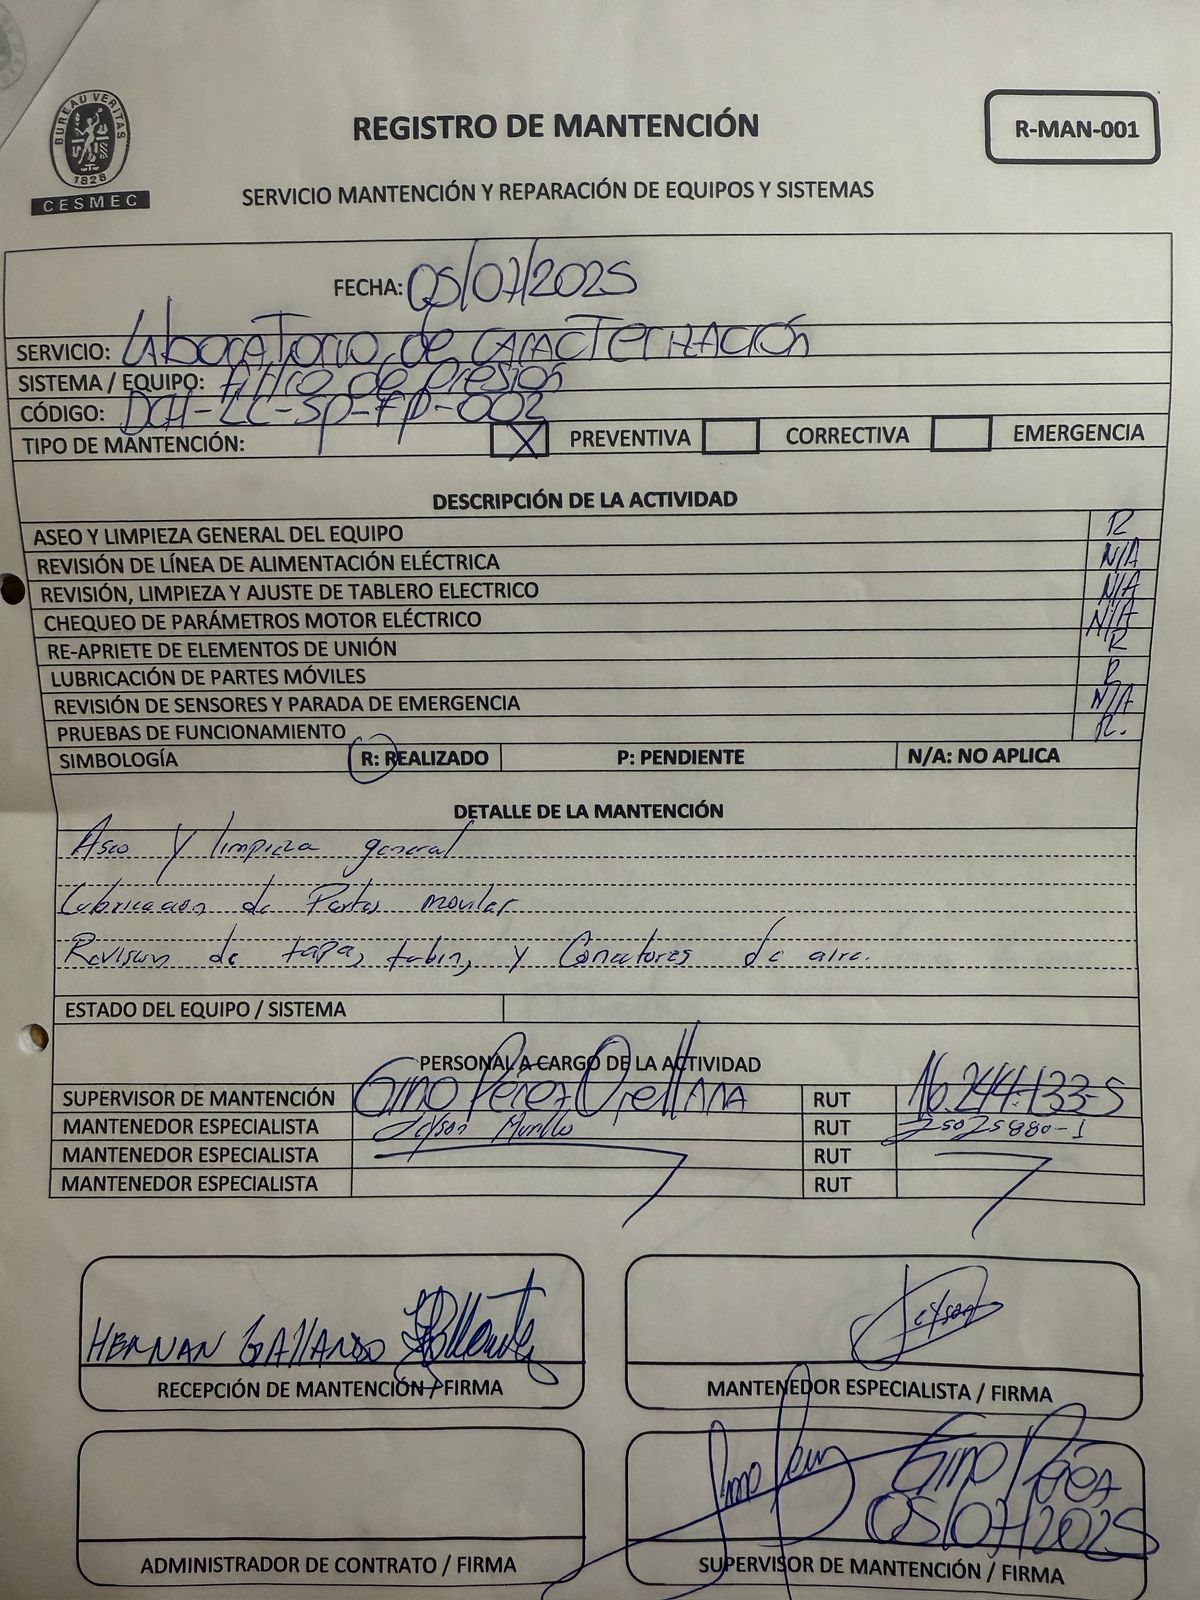 BUREAU VERITAS
1828
CESMEC
REGISTRO DE MANTENCIÓN
R-MAN-001
SERVICIO MANTENCIÓN Y REPARACIÓN DE EQUIPOS Y SISTEMAS
FECHA: 05/07/2025
SERVICIO: Laboratorio de CARACTERIZACIÓN
SISTEMA / EQUIPO: Filtro de Presión
CÓDIGO: DCH-LC-SP-FP-002
TIPO DE MANTENCIÓN: X PREVENTIVA CORRECTIVA EMERGENCIA
DESCRIPCIÓN DE LA ACTIVIDAD
ASEO Y LIMPIEZA GENERAL DEL EQUIPO R
REVISIÓN DE LÍNEA DE ALIMENTACIÓN ELÉCTRICA N/A
REVISIÓN, LIMPIEZA Y AJUSTE DE TABLERO ELECTRICO N/A
CHEQUEO DE PARÁMETROS MOTOR ELÉCTRICO N/A
RE-APRIETE DE ELEMENTOS DE UNIÓN R
LUBRICACIÓN DE PARTES MÓVILES R
REVISIÓN DE SENSORES Y PARADA DE EMERGENCIA N/A
PRUEBAS DE FUNCIONAMIENTO R.
SIMBOLOGÍA R: REALIZADO P: PENDIENTE N/A: NO APLICA
DETALLE DE LA MANTENCIÓN
Aseo y limpieza general
Lubricacion de Partes moviles
Revision de tapa, y Conectores de aire.
ESTADO DEL EQUIPO / SISTEMA
PERSONAL A CARGO DE LA ACTIVIDAD
SUPERVISOR DE MANTENCIÓN Gino Pérez Orellana RUT 16.244.133-5
MANTENEDOR ESPECIALISTA Jeyson Murillo RUT 25025880-1
MANTENEDOR ESPECIALISTA RUT
MANTENEDOR ESPECIALISTA RUT
HERNAN GALLARDO
RECEPCIÓN DE MANTENCIÓN / FIRMA
Jeyson
MANTENEDOR ESPECIALISTA / FIRMA
ADMINISTRADOR DE CONTRATO / FIRMA
Gino Pérez
05/07/2025
SUPERVISOR DE MANTENCIÓN / FIRMA